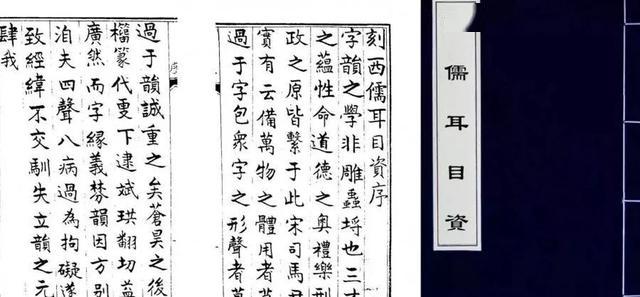 儒耳目資
刻西儒耳目資序
字韻之學非雕蟲埒也三
之蘊性命道德之奧禮樂刑
政之原皆繫于此宋司馬君
實有云備萬物之體用者莫
過于字包衆字之形聲者莫
序
過于韻誠重之矣蒼昊之後
篆代更下逮斌珙翻切益
廣然而字緣義棼韻因方別
洎夫四聲八病過為拘礙遂
致經緯不交馴失立韻之元
肆我